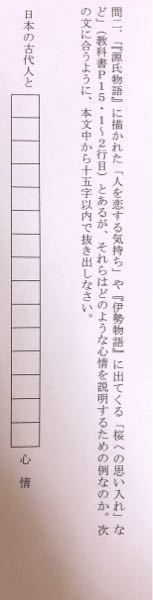 問二、「『源氏物語』に描かれた「人を恋する気持ち」や『伊勢物語』に出てくる「桜への思い入れ」な
ど」（教科書Ｐ１５・１～２行目）とあるが、それらはどのような心情を説明するための例なのか。次
の文に合うように、本文中から十五字以内で抜き出しなさい。
日本の古代人と
心情